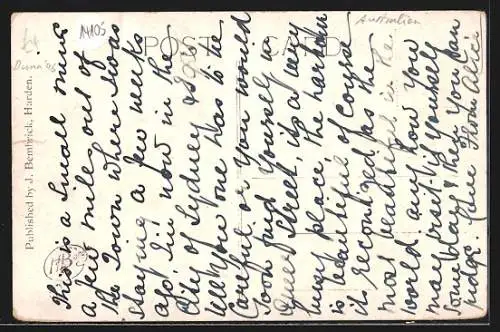 POST CARD
Australien
A1105
Dunn '06
Published by J. Bembrick, Harden.
This is a small mine
a few miles out of
the Town where I was
staying a few weeks
ago, I'm now in the
City of Sydney & I
tell you one has to be
careful or you would
soon find yourself in
Queer Street, its a very
busy place, the harbour
is beautiful of course
its recontzed as the
most beautiful in the
world any how you
may visit it yourself
some day & then you can
judge. Love from Alice